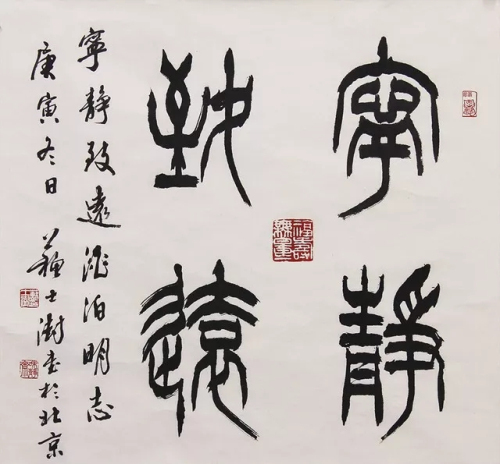 寧靜
致遠
寧靜致遠淡泊明志
庚寅冬日蘇士澍書於北京